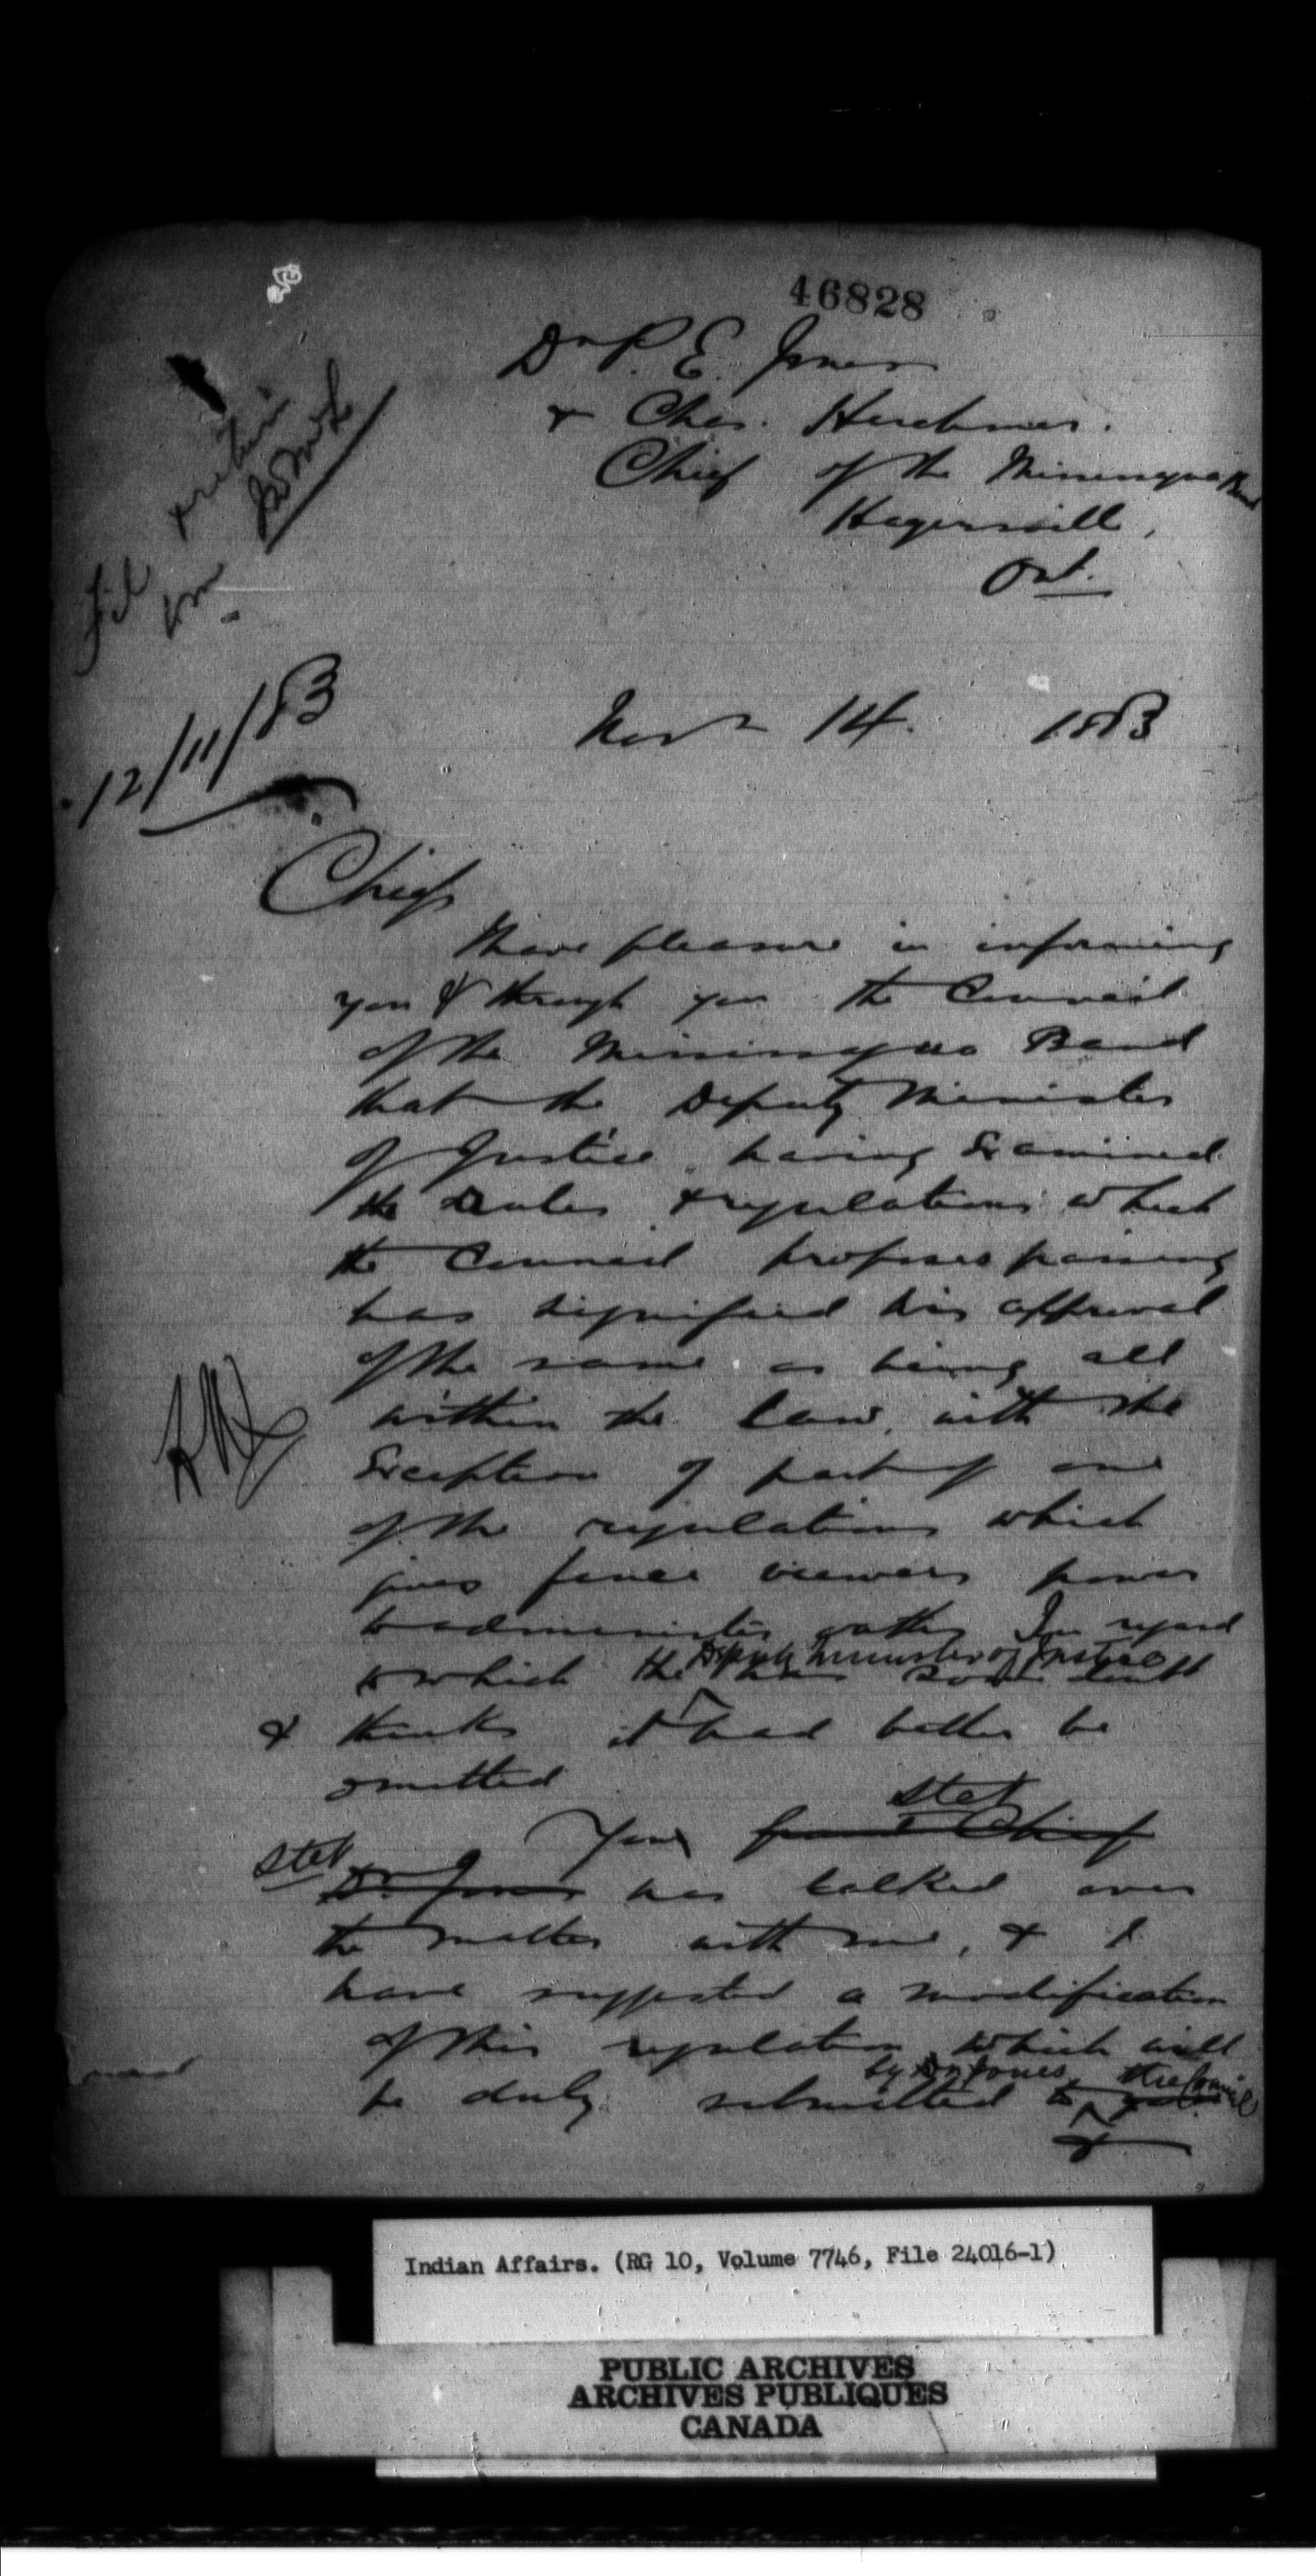 46828
Dr P. E. Jones
& Chas. Herchmer.
Chief of the Mississagua Band
Hagersvill,
Ont.
12/11/83
Novr 14. 1883
Chiefs
I have pleasure in informing
you & through you the Council
of the Mississagua Band
that the Deputy Minister
of Justice having Examined
the Rules & regulations which
the Council proposes passing
has signified his approval
of the same as being all
within the law, with the
Exception of part of one
of the regulations which
gives fence viewers power
to administer oaths In regard
Deputy Minister of Justice
to which the has some doubt
& thinks it had better be
omitted
stet
Your Chief
stet
Dr. Jones has talked over
the matter with me, & I
have suggested a modification
of this regulation which will
by Dr Jones the Council
be duly submitted to you
&
Indian Affairs. (RG 10, Volume 7746, File 24016-1)
PUBLIC ARCHIVES
ARCHIVES PUBLIQUES
CANADA